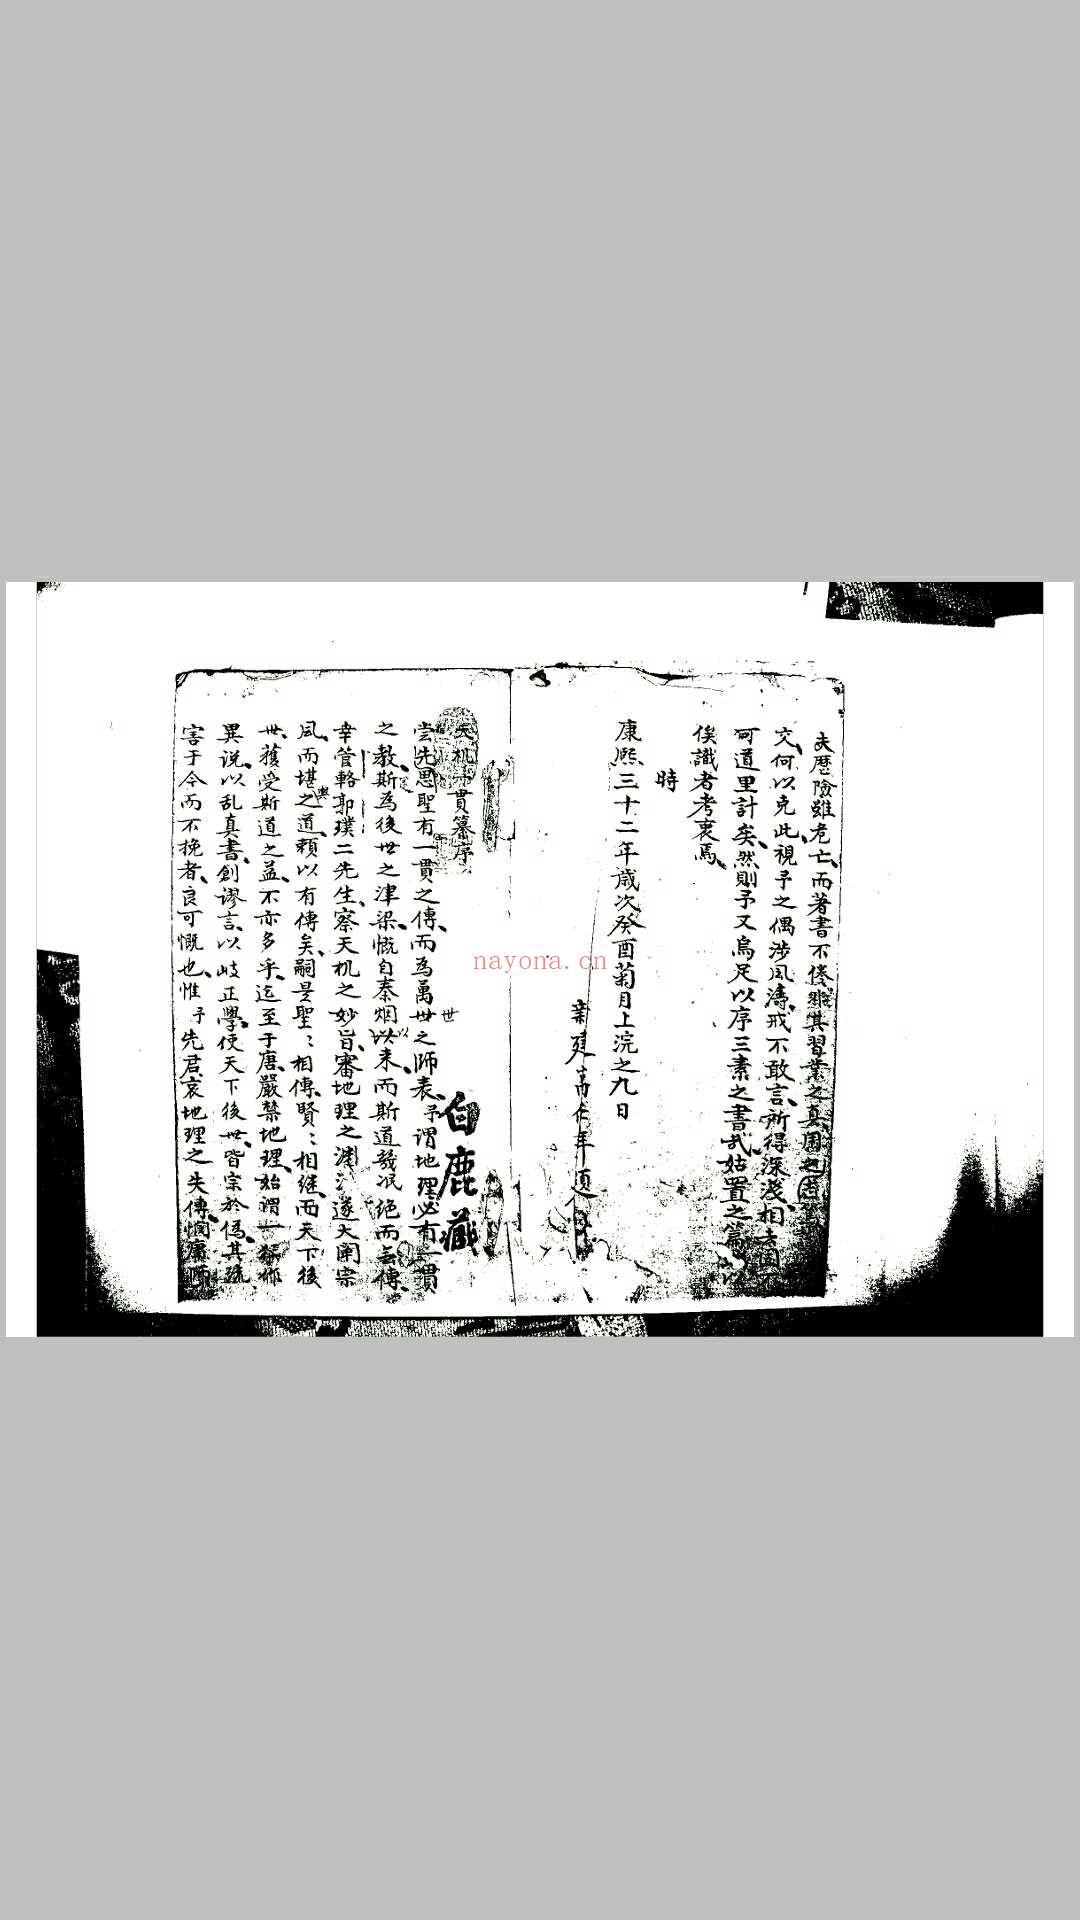 夫歷險雖危亡、而著書不倦、非其習業之真、困之志
交、何以克此、視予之偶涉風濤、戒不敢言、所得深淺、相去固不
可道里計矣、然則予又烏足以序三素之書哉、姑置之篇以
俟識者考衷焉、
時
康熙三十二年歲次癸酉菊月上浣之九日
新建
天机一貫纂序
白鹿藏
嘗先思聖有一貫之傳、而為萬世之師表、予謂地理必有一貫
之教、斯為後世之津梁、慨自秦烟以来、而斯道幾泯絕而無傳、
幸管輅郭璞二先生、察天机之妙旨、審地理之遂大開宗
風、而堪輿之道、頼以有傳矣、嗣是聖〻相傳、賢〻相継、而天下後
世、獲受斯道之益、不亦多乎、迄至于唐、嚴禁地理、始謂一行作
異說、以乱真書、創謬言、以岐正學、使天下後世、皆宗於偽、其疏
害于今而不挽者、良可慨也、惟予先君、哀地理之失傳、憫庸師
nayona.cn